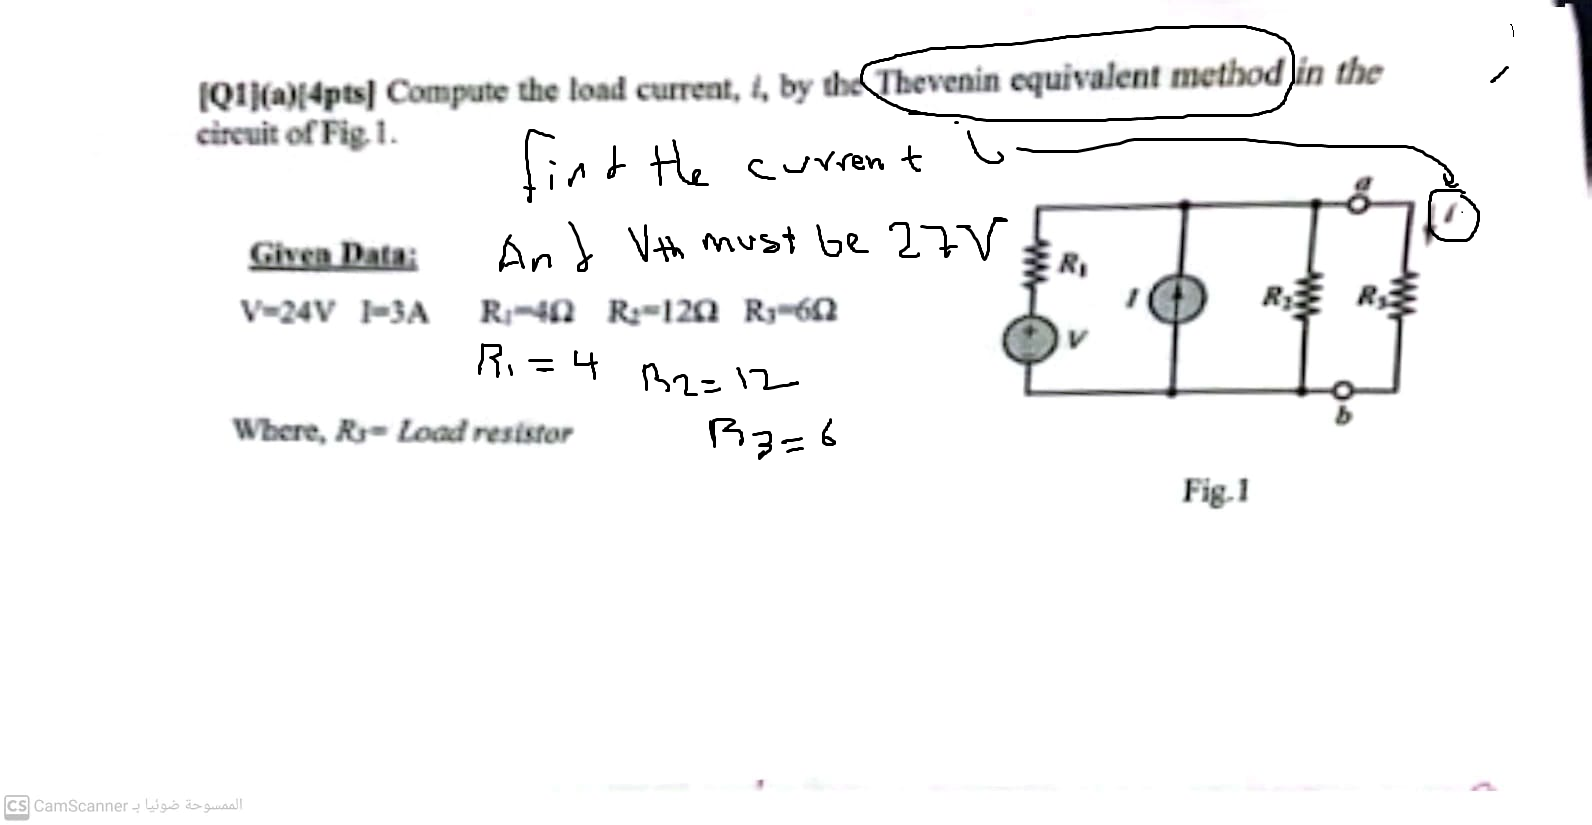 [Q1](a)[4pts] Compute the load current, i, by the Thevenin equivalent method in the
circuit of Fig.1.
find the current i
And Vth must be 27V
Given Data:
V=24V I=3A R₁=4Ω R₂=12Ω R₃=6Ω
R₁ = 4 R2= 12
R3=6
Where, R₃= Load resistor
a
i
R₁
I
R₂
R₃
V
b
Fig.1
CS CamScanner الممسوحة ضوئيا بـ